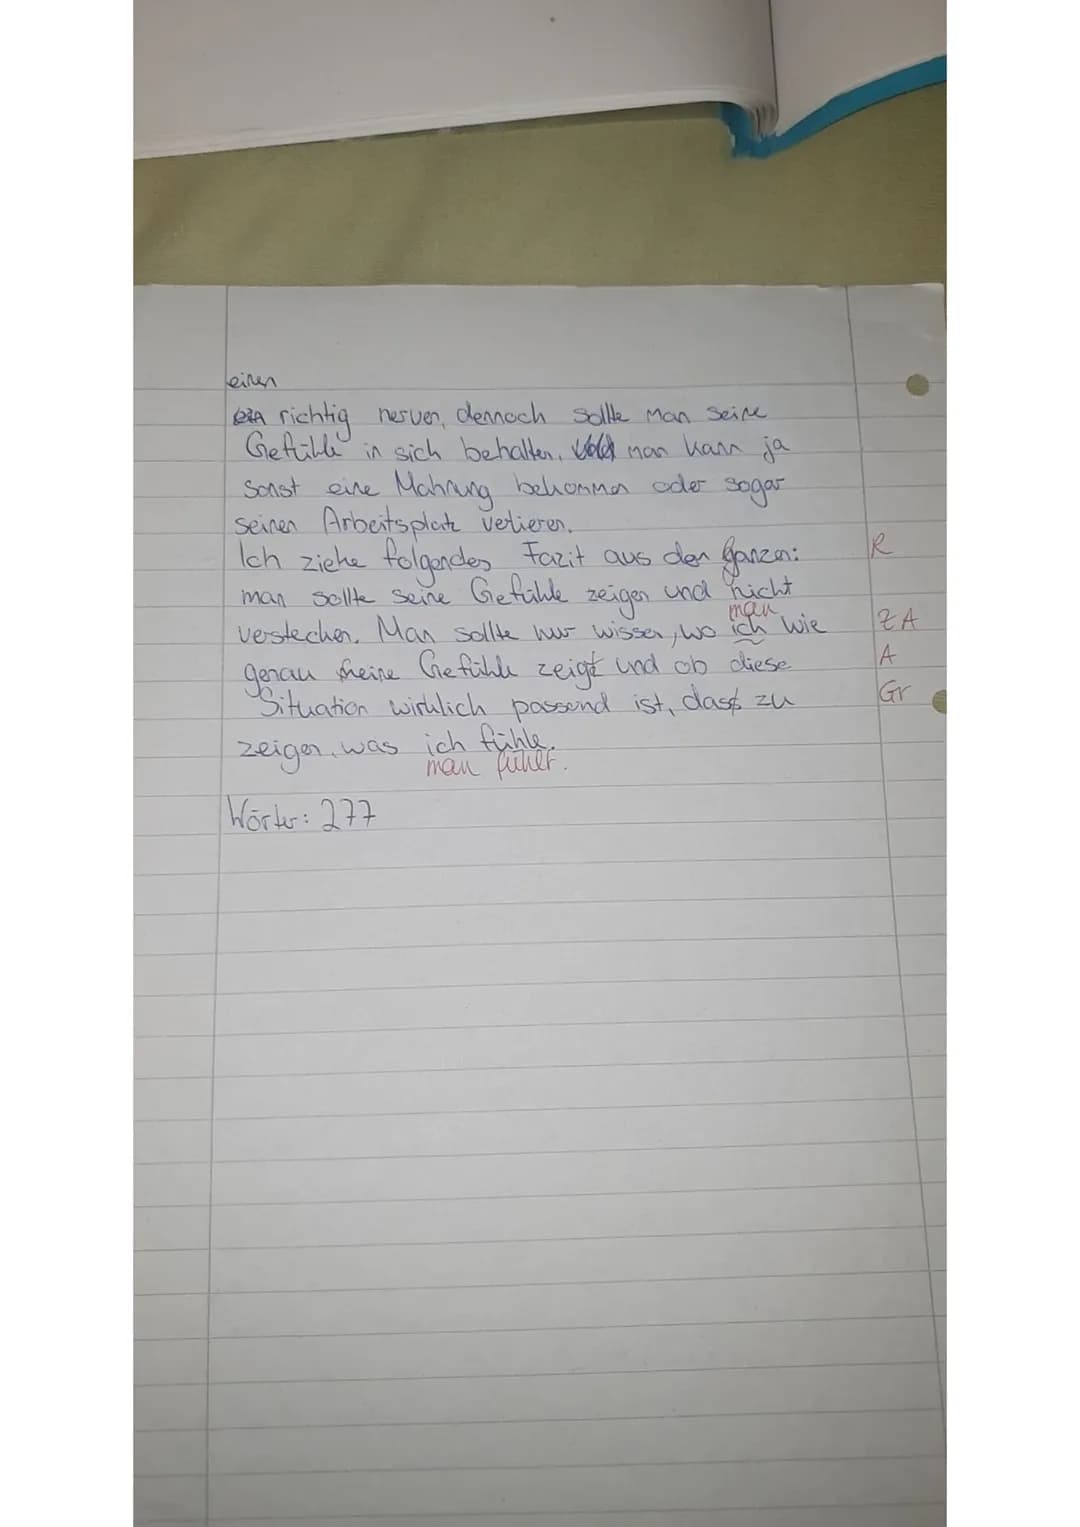 einen
richtig nerven, dennoch sollte man seine
Gefühle in sich behalten, man kann ja
sonst eine Mahnung bekommen oder sogar
seinen Arbeitsplatz verlieren.
Ich ziehe folgendes Fazit aus den ganzen: R
man sollte seine Gefühle zeigen und nicht
man
verstecken. Man sollte nur wissen, wo ich wie ZA
genau meine Gefühle zeigt und ob diese A
Situation wirklich passend ist, dass zu Gr
zeigen, was ich fühle.
man fühlt.
Wörter: 277